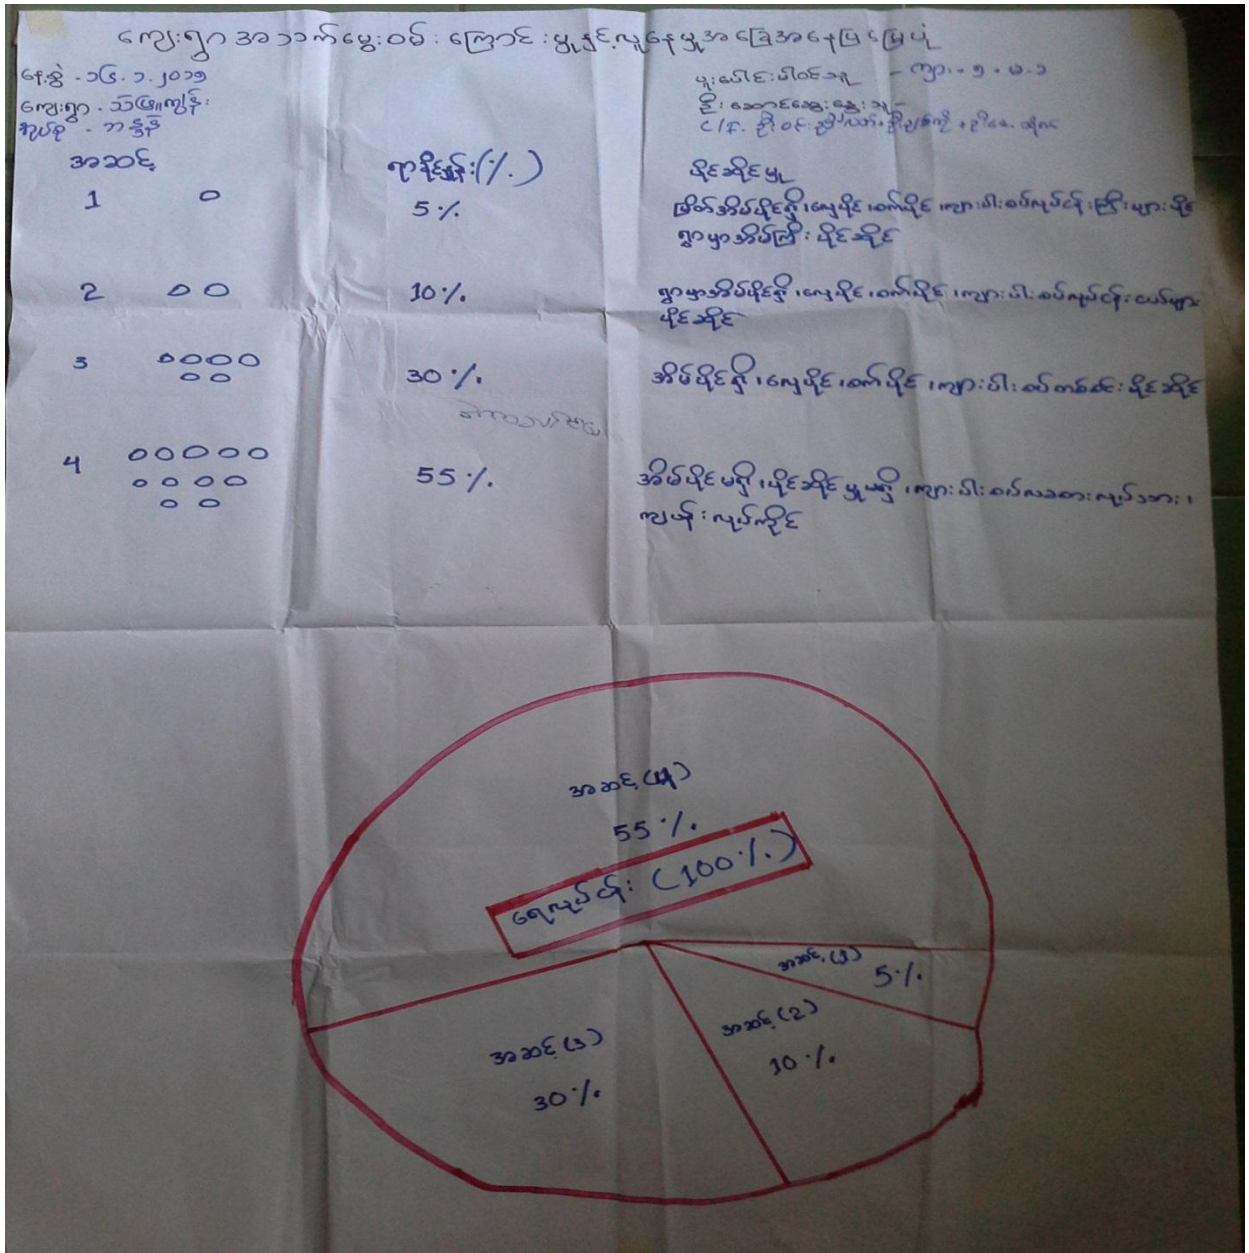 ကျေးရွာအသက်မွေးဝမ်းကြောင်းမှုနှင့်လူနေမှုအခြေအနေပြမြေပုံ
နေ့စွဲ - ၁၆.၁.၂၀၁၅
ကျေးရွာ - သဖြူကျွန်း
အုပ်စု -
ပူးပေါင်းပါဝင်သူ - ကျား - ၅ - မ - ၁
ဦးဆောင်ဆွေးနွေးသူ -
C/F.
အဆင့် ရာခိုင်နှုန်း(%) ပိုင်ဆိုင်မှု
1 0 5% မြိတ်အိမ်ပိုင်ရှိ၊လှေပိုင်၊စက်ပိုင်၊ကျားပါးစပ်လုပ်ငန်းကြီးများပိုင်
ရွာမှာအိမ်ကြီးပိုင်ဆိုင်
2 00 10% ရွာမှာအိမ်ပိုင်ရှိ၊လှေပိုင်၊စက်ပိုင်၊ကျားပါးစပ်လုပ်ငန်းငယ်များ
ပိုင်ဆိုင်
3 0000 30% အိမ်ပိုင်ရှိ၊လှေပိုင်၊စက်ပိုင်၊ကျားပါးစပ်တစ်စင်းပိုင်ဆိုင်
00
4 00000 55% အိမ်ပိုင်မရှိ၊ပိုင်ဆိုင်မှုမရှိ၊ကျားပါးစပ်လခစားလုပ်သား၊
0000 ကျပန်းလုပ်ကိုင်
00
အဆင့်(4)
55%
ရေလုပ်ငန်း (100%)
အဆင့်(1)
5%
အဆင့်(2)
10%
အဆင့်(3)
30%